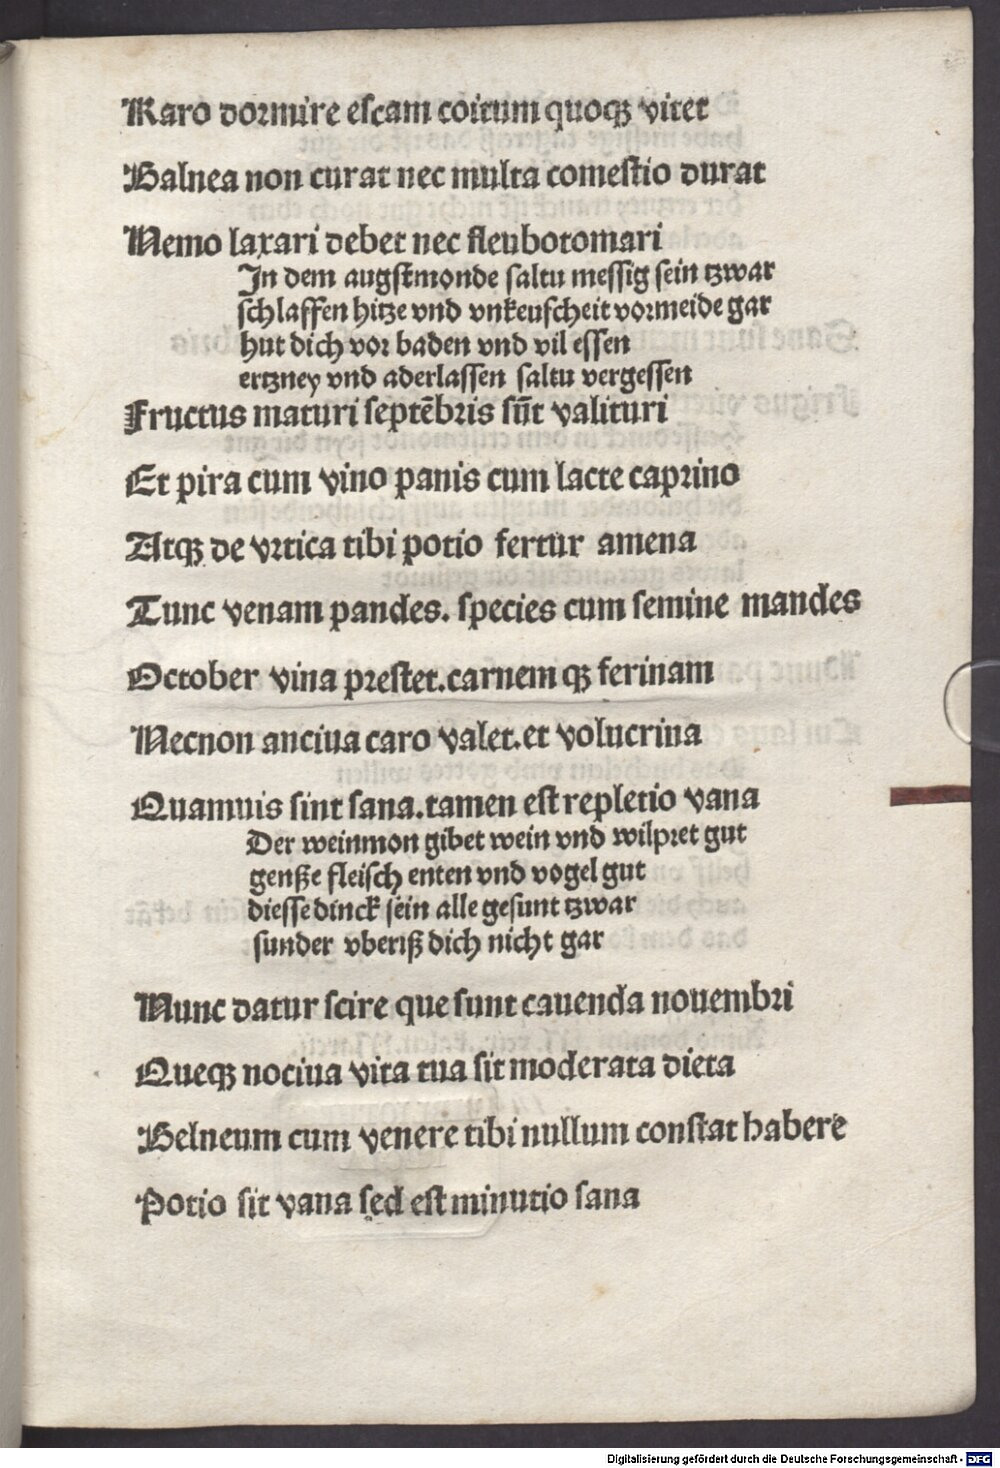 Raro dormire escam coitum quoqꝫ vitet
Balnea non curat nec multa comestio durat
Nemo laxari debet nec fleubotomari
In dem augstmonde saltu messig sein tzwar
schlaffen hitze vnd vnkeuscheit vormeide gar
hut dich vor baden vnd vil essen
ertzney vnd aderlassen saltu vergessen
Fructus maturi septēbris sūt valituri
Et pira cum vino panis cum lacte caprino
Atqꝫ de vrtica tibi potio fertur amena
Tunc venam pandes. species cum semine mandes
October vina prestet.carnem qꝫ ferinam
Necnon anciua caro valet.et volucrina
Quamuis sint sana.tamen est repletio vana
Der weinmon gibet wein vnd wilpret gut
genße fleisch enten vnd vogel gut
diesse dinck sein alle gesunt tzwar
sunder vberiß dich nicht gar
Nunc datur scire que sunt cauenda nouembri
Queqꝫ nociua vita tua sit moderata dieta
Belneum cum venere tibi nullum constat habere
Potio sit vana sed est minutio sana
Digitalisierung gefördert durch die Deutsche Forschungsgemeinschaft - DFG